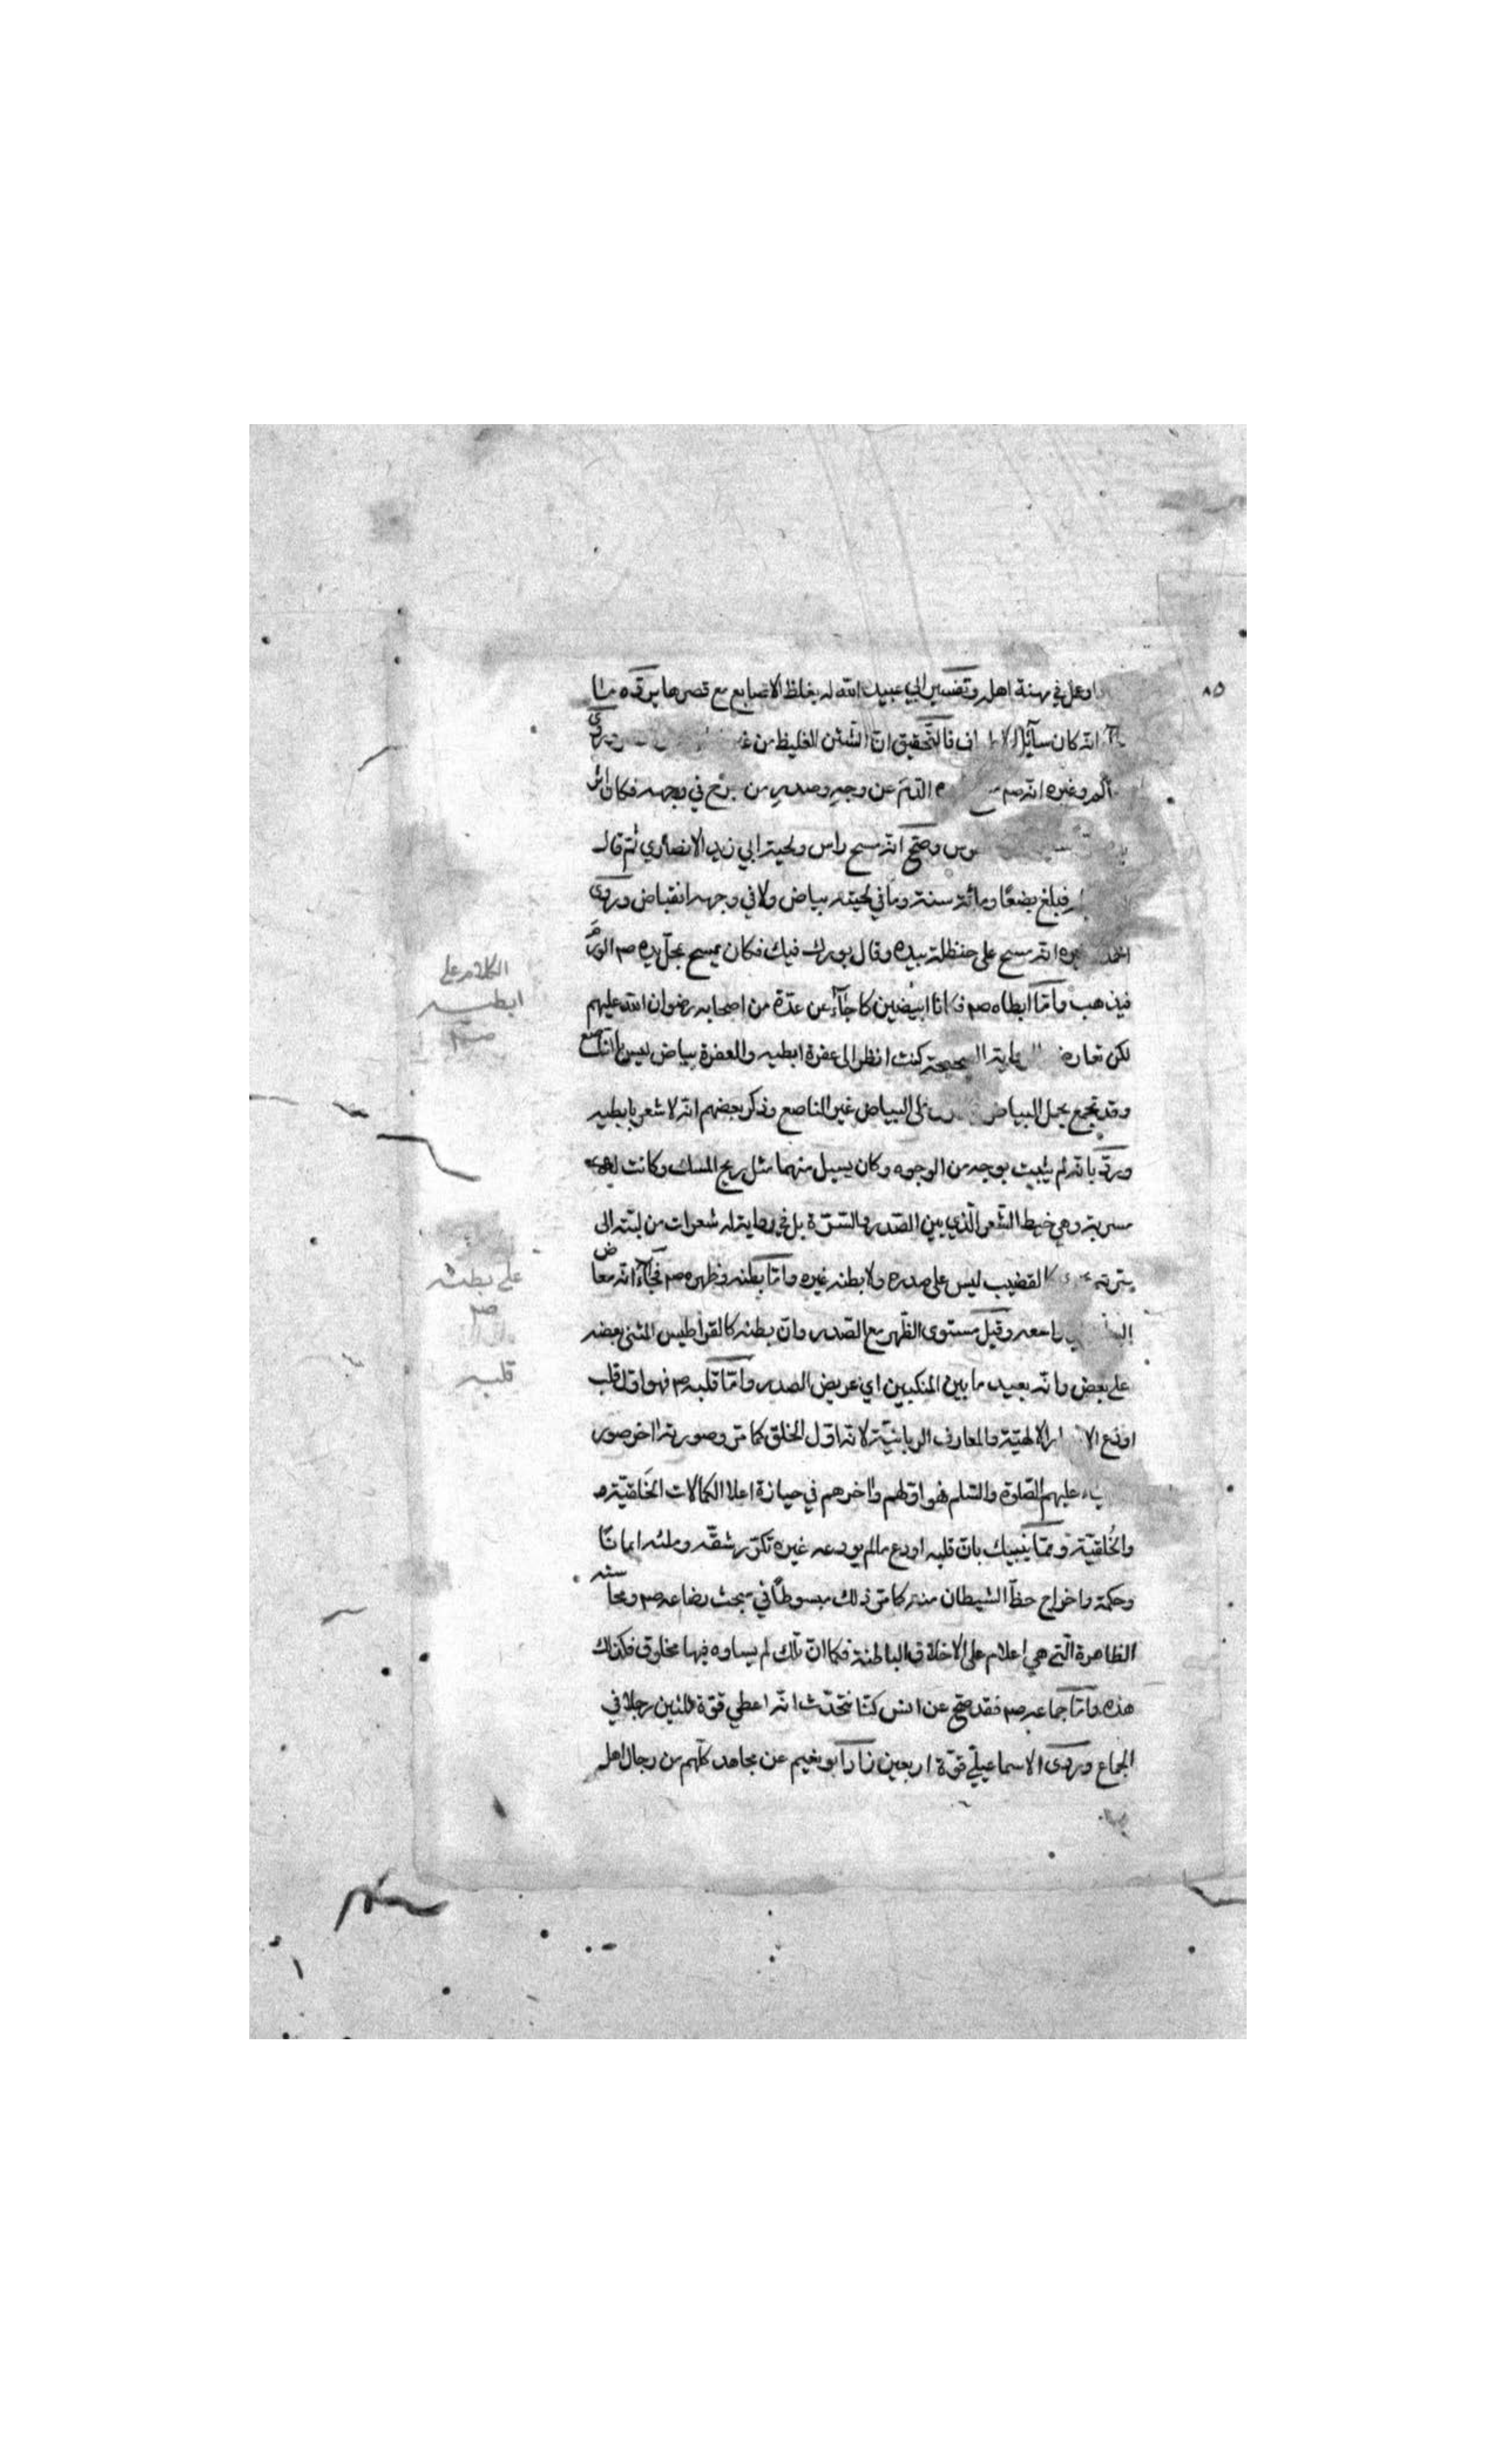 او عمل في مهنة اهله وتفسير ابي عبيد الله له بغلظ الاصابع مع قصرها يرده ما
انه كان سائل فالتحقيق ان الشثن الغليظ من وروى
وغيره انه صم الدم عن وجه وصدر من جرح في وجهه فكان اثر
وصح انه مسح راس ولحية ابي زيد الانصاري ثم قال
فبلغ بضعًا ومائة سنة وما في لحيته بياض ولا في وجهه انقباض وروى
احمد وغيره انه مسح على حنظلة بيده وقال بورك فيك فكان يمسح بمحل يده صم الورم
فيذهب واما ابطاه صم فكانا ابيضين كما جاء عن عدة من اصحابه رضوان الله عليهم
لكن تعارضه الرواية الصحيحة كنت انظر الى عفرة ابطيه والعفرة بياض ليس بالناصع
وقد يجمع بحمل البياض على البياض غير الناصع وذكر بعضهم انه لا شعر بابطيه
ورد بانه لم يثبت بوجه من الوجوه وكان يسيل منهما مثل ريح المسك وكانت له
مسربة وهي خيط الشعر الذي بين الصدر والسرة بل في رواية له شعرات من لبته الى
سرته كالقضيب ليس على صدره ولا بطنه غيره واما بطنه وظهره صم فجاء انه مفاض
البطن اي واسعه وقيل مستوى الظهر مع الصدر وان بطنه كالقراطيس المثنى بعضه
على بعض وانه بعيد ما بين المنكبين اي عريض الصدر واما قلبه صم فهو اول قلب
اودع الاسرار الالهية والمعارف الربانية لانه اول الخلق كما مر وصورته اخر صور
الانبياء عليهم الصلوة والسلم فهو اولهم واخرهم في حيازة اعلا الكمالات الخَلقية
والخُلقية ومما ينبيك بان قلبه اودع مالم يودعه غيره تكرر شقه وملئه ايمانًا
وحكمة واخراج حظ الشيطان منه كما مر ذلك مبسوطًا في مبحث رضاعه صم ومحاسنه
الظاهرة التي هي اعلام على الاخلاق الباطنة فكما ان تلك لم يساوه فيها مخلوق فكذلك
هذه واما جماعه صم فقد صح عن انس كنا نتحدث انه اعطي قوة ثلثين رجلا في
الجماع وروى الاسماعيلي قوة اربعين زاد ابو نعيم عن مجاهد كلهم من رجال اهل
٨٥
الكلام على
ابطيه
صم
على بطنه
صم
قلبه